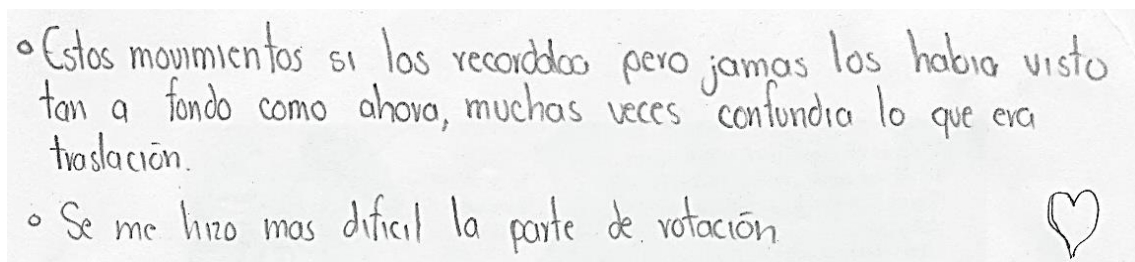 • Estos movimientos si los recordaba pero jamas los habia visto
tan a fondo como ahora, muchas veces confundia lo que era
traslación.
• Se me hizo mas dificil la parte de rotación